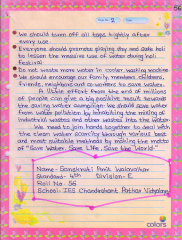 56
2
We should turn off all taps tightly after
every use.
Everyone should promote playing dry and safe holi
to lessen the massive use of water during holi
festival.
Do not waste more water in cooler, washing machine
We should encourage our family members, children,
friends, neighbours and co-workers to save water.
A little effort from the end of millions
of people can give a big positive result towards
the saving water campaign. We should save water
from water pollution by the mixing of
industrial wastes and other wastes into the water
We need to join hands together to deal with
the clean water scarcity through various best
and most suitable methods by making the motto
of "Save Water, Save Life, Save the World"
Name:- Sanskruti Amit
Standard:- 4th Division:- E
Roll No. 56
School:- IES Chandrakant Patkar Vidyalaya
colors